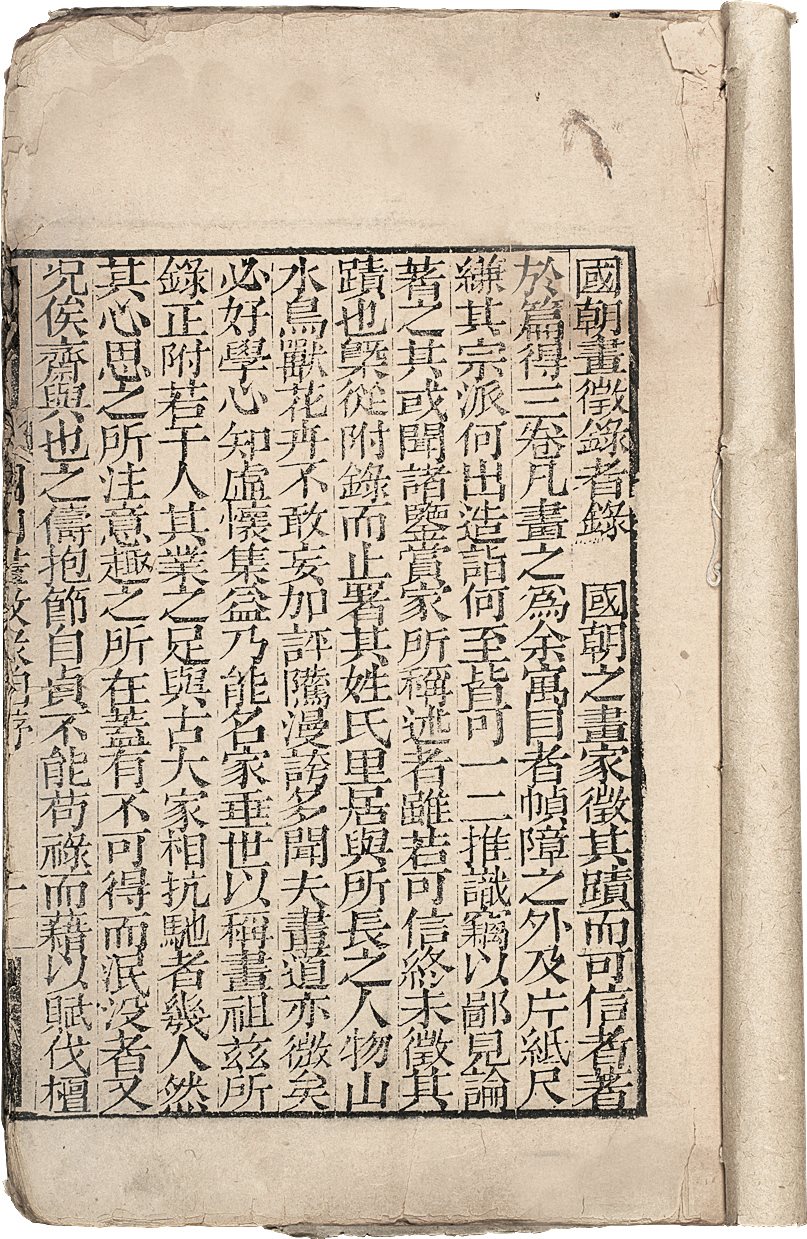 國朝畫徵錄者錄　國朝之畫家徵其蹟而可信者著
於篇得三卷凡畫之爲余寓目者幀障之外及片紙尺
縑其宗派何出造詣何至皆可一二推識竊以鄙見論
著之其或聞諸鑒賞家所稱述者雖若可信終未徵其
蹟也槩從附錄而止署其姓氏里居與所長之人物山
水鳥獸花卉不敢妄加評隲漫誇多聞夫畫道亦微矣
必好學心知虛懷集益乃能名家垂世以稱畫祖玆所
錄正附若干人其業之足與古大家相抗馳者幾人然
其心思之所注意趣之所在蓋有不可得而泯沒者又
况俟齋與也之儔抱節自貞不能苟祿而藉以賦伐檀